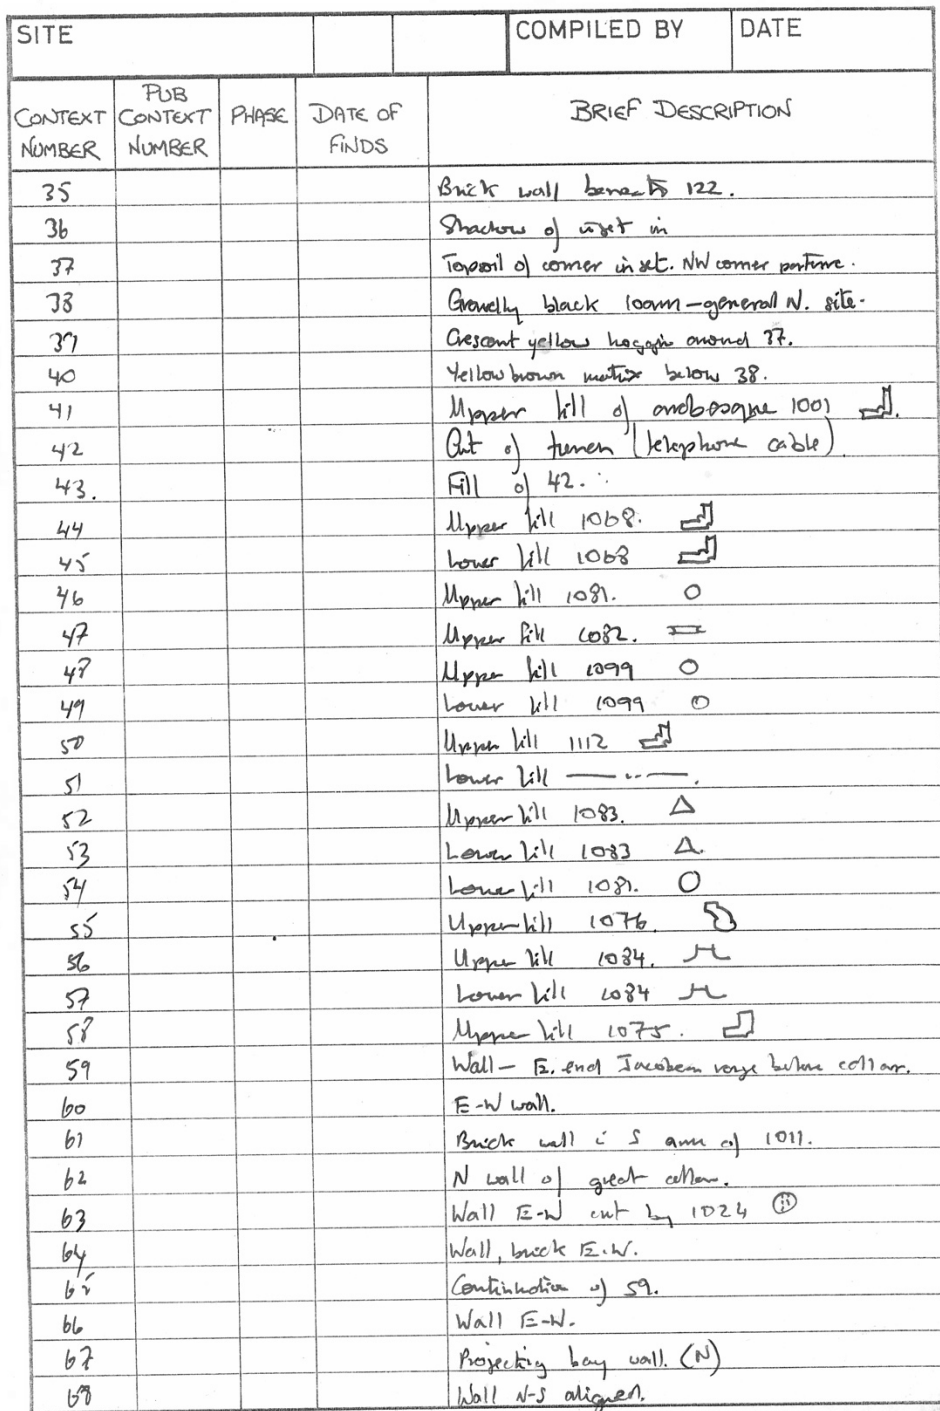 SITE COMPILED BY DATE
CONTEXT NUMBER PUB CONTEXT NUMBER PHASE DATE OF FINDS BRIEF DESCRIPTION
35 Brick wall beneath 122.
36 Shadow of inset in
37 Topsoil of corner inset. NW corner parterre.
38 Gravelly black loam - general N. site.
39 Crescent yellow hoggin around 37.
40 Yellow brown matrix below 38.
41 Upper fill of arabesque 1001
42 Cut of (telephone cable)
43. Fill of 42.
44 Upper fill 1068.
45 Lower fill 1068
46 Upper fill 1081.
47 Upper fill 1082.
48 Upper fill 1099
49 Lower fill 1099
50 Upper fill 1112
51 Lower fill — ,, —.
52 Upper fill 1083.
53 Lower fill 1083
54 Lower fill 1081.
55 Upper fill 1076.
56 Upper fill 1084.
57 Lower fill 1084
58 Upper fill 1075.
59 Wall - E. end Jacobean range before cellar.
60 E-W wall.
61 Brick wall in S arm of 1011.
62 N wall of great cellar.
63 Wall E-W cut by 1024
64 Wall, brick E.W.
65 Continuation of 59.
66 Wall E-W.
67 Projecting bay wall. (N)
68 Wall N-S aligned.